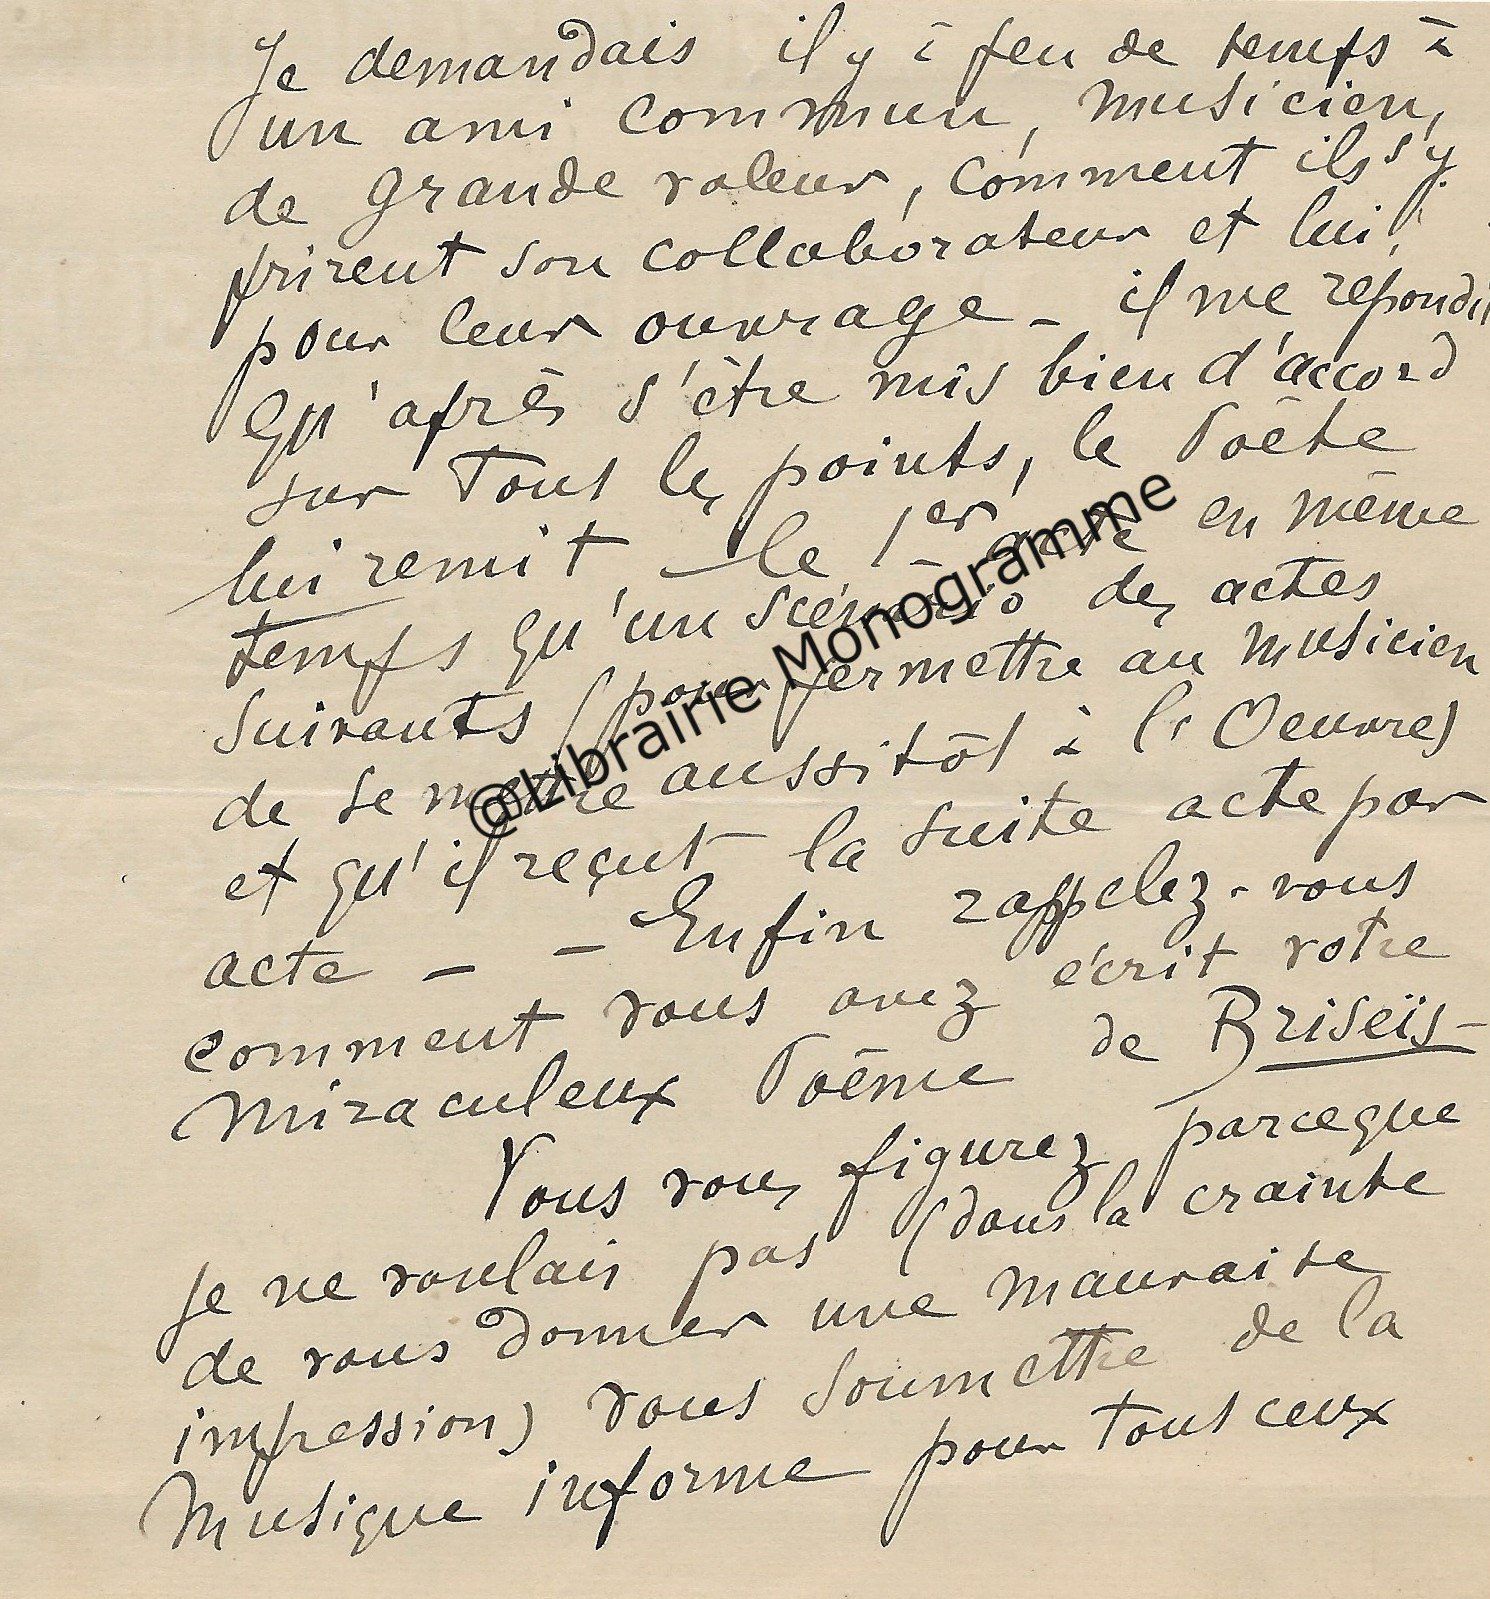 Je demandais il y à peu de temps à
un ami commun, musicien,
de grande valeur, comment ils s'y
prirent son collaborateur et lui,
pour leur ouvrage - il me répondit
Qu'après s'être mis bien d'accord
sur Tous les points, le Poëte
lui remit, le 1er acte en même
temps qu'un scénario des actes
suivants (pour permettre au musicien
de se mettre aussitôt à l'Oeuvre)
et qu'il reçut la suite acte par
acte - - Enfin rappelez-vous
comment vous avez écrit votre
miraculeux Poëme de Briseïs -
Vous vous figurez parceque
je ne voulais pas (dans la crainte
de vous donner une mauvaise
impression) vous soumettre de la
Musique informe pour tous ceux
@Librairie Monogramme